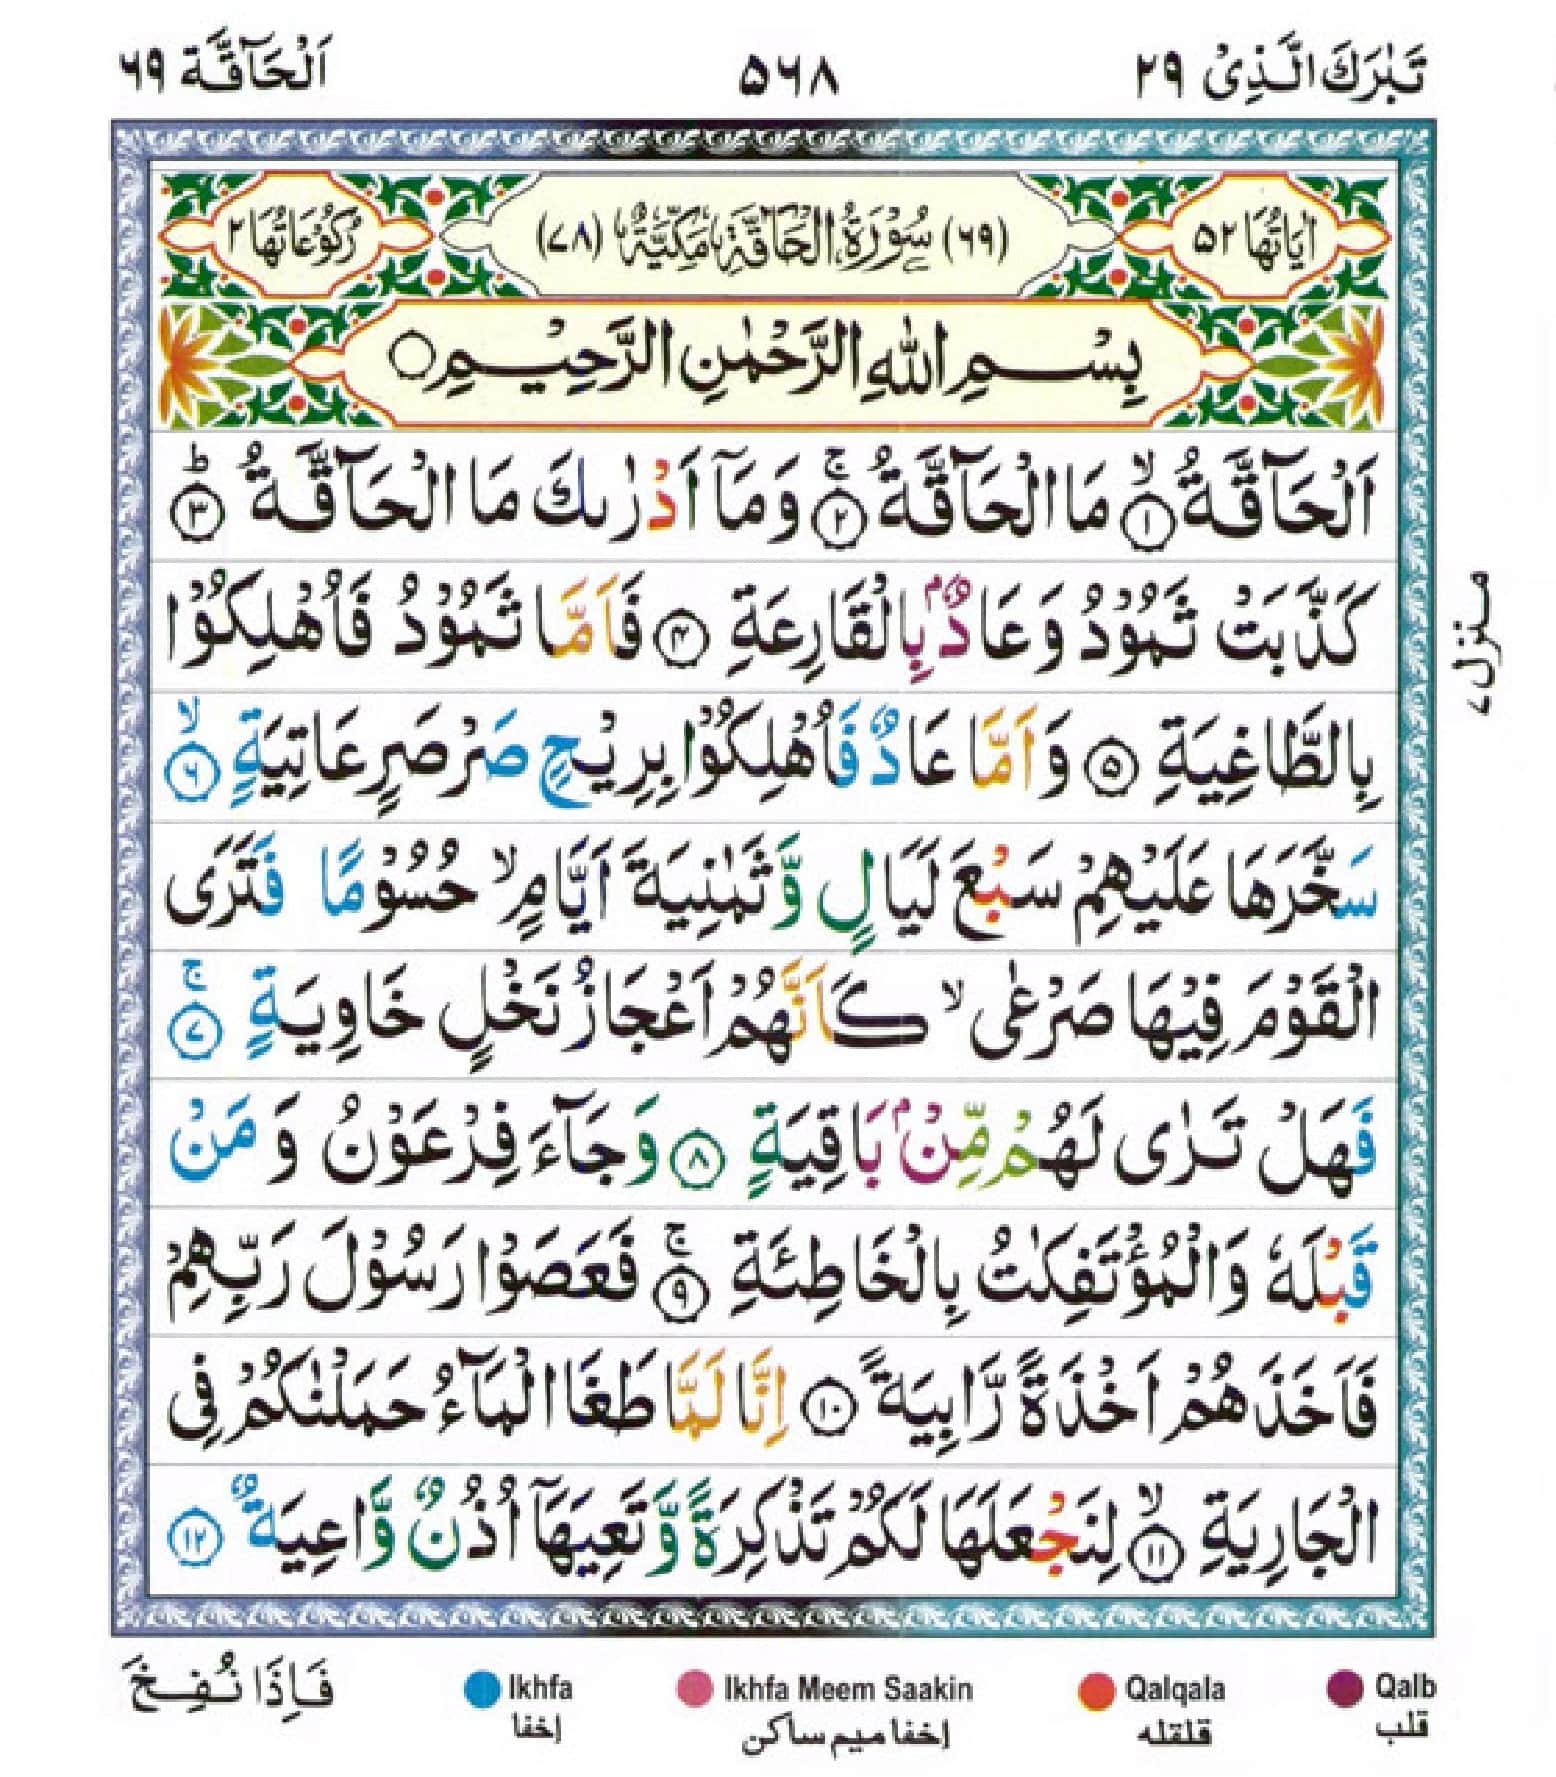 تَبٰرَكَ الَّذِیْ ۲۹ ۵۶۸ اَلْحَآقَّة ۶۹
اٰیَاتُهَا ۵۲ (۶۹) سُوْرَةُ الْحَآقَّةِ مَكِّیَّةٌ (۷۸) رُكُوْعَاتُهَا ۲
بِسْمِ اللهِ الرَّحْمٰنِ الرَّحِیْمِ ○
اَلْحَآقَّةُ ۙ﴿۱﴾ مَا الْحَآقَّةُ ۚ﴿۲﴾ وَمَآ اَدْرٰىكَ مَا الْحَآقَّةُ ؕ﴿۳﴾
كَذَّبَتْ ثَمُوْدُ وَعَادٌۢ بِالْقَارِعَةِ ﴿۴﴾ فَاَمَّا ثَمُوْدُ فَاُهْلِكُوْا
بِالطَّاغِیَةِ ﴿۵﴾ وَاَمَّا عَادٌ فَاُهْلِكُوْا بِرِیْحٍ صَرْصَرٍ عَاتِیَةٍ ۙ﴿۶﴾
سَخَّرَهَا عَلَیْهِمْ سَبْعَ لَیَالٍ وَّثَمٰنِیَةَ اَیَّامٍ ۙ حُسُوْمًا فَتَرَى
الْقَوْمَ فِیْهَا صَرْعٰى ۙ كَاَنَّهُمْ اَعْجَازُ نَخْلٍ خَاوِیَةٍ ۚ﴿۷﴾
فَهَلْ تَرٰى لَهُمْ مِّنْۢ بَاقِیَةٍ ﴿۸﴾ وَجَآءَ فِرْعَوْنُ وَمَنْ
قَبْلَهٗ وَالْمُؤْتَفِكٰتُ بِالْخَاطِئَةِ ۚ﴿۹﴾ فَعَصَوْا رَسُوْلَ رَبِّهِمْ
فَاَخَذَهُمْ اَخْذَةً رَّابِیَةً ﴿۱۰﴾ اِنَّا لَمَّا طَغَا الْمَآءُ حَمَلْنٰكُمْ فِی
الْجَارِیَةِ ۙ﴿۱۱﴾ لِنَجْعَلَهَا لَكُمْ تَذْكِرَةً وَّتَعِیَهَآ اُذُنٌ وَّاعِیَةٌ ﴿۱۲﴾
منزل ۷
Qalb Qalqala Ikhfa Meem Saakin Ikhfa
قلب قلقله إخفا ميم ساكن إخفا
فَاِذَا نُفِخَ